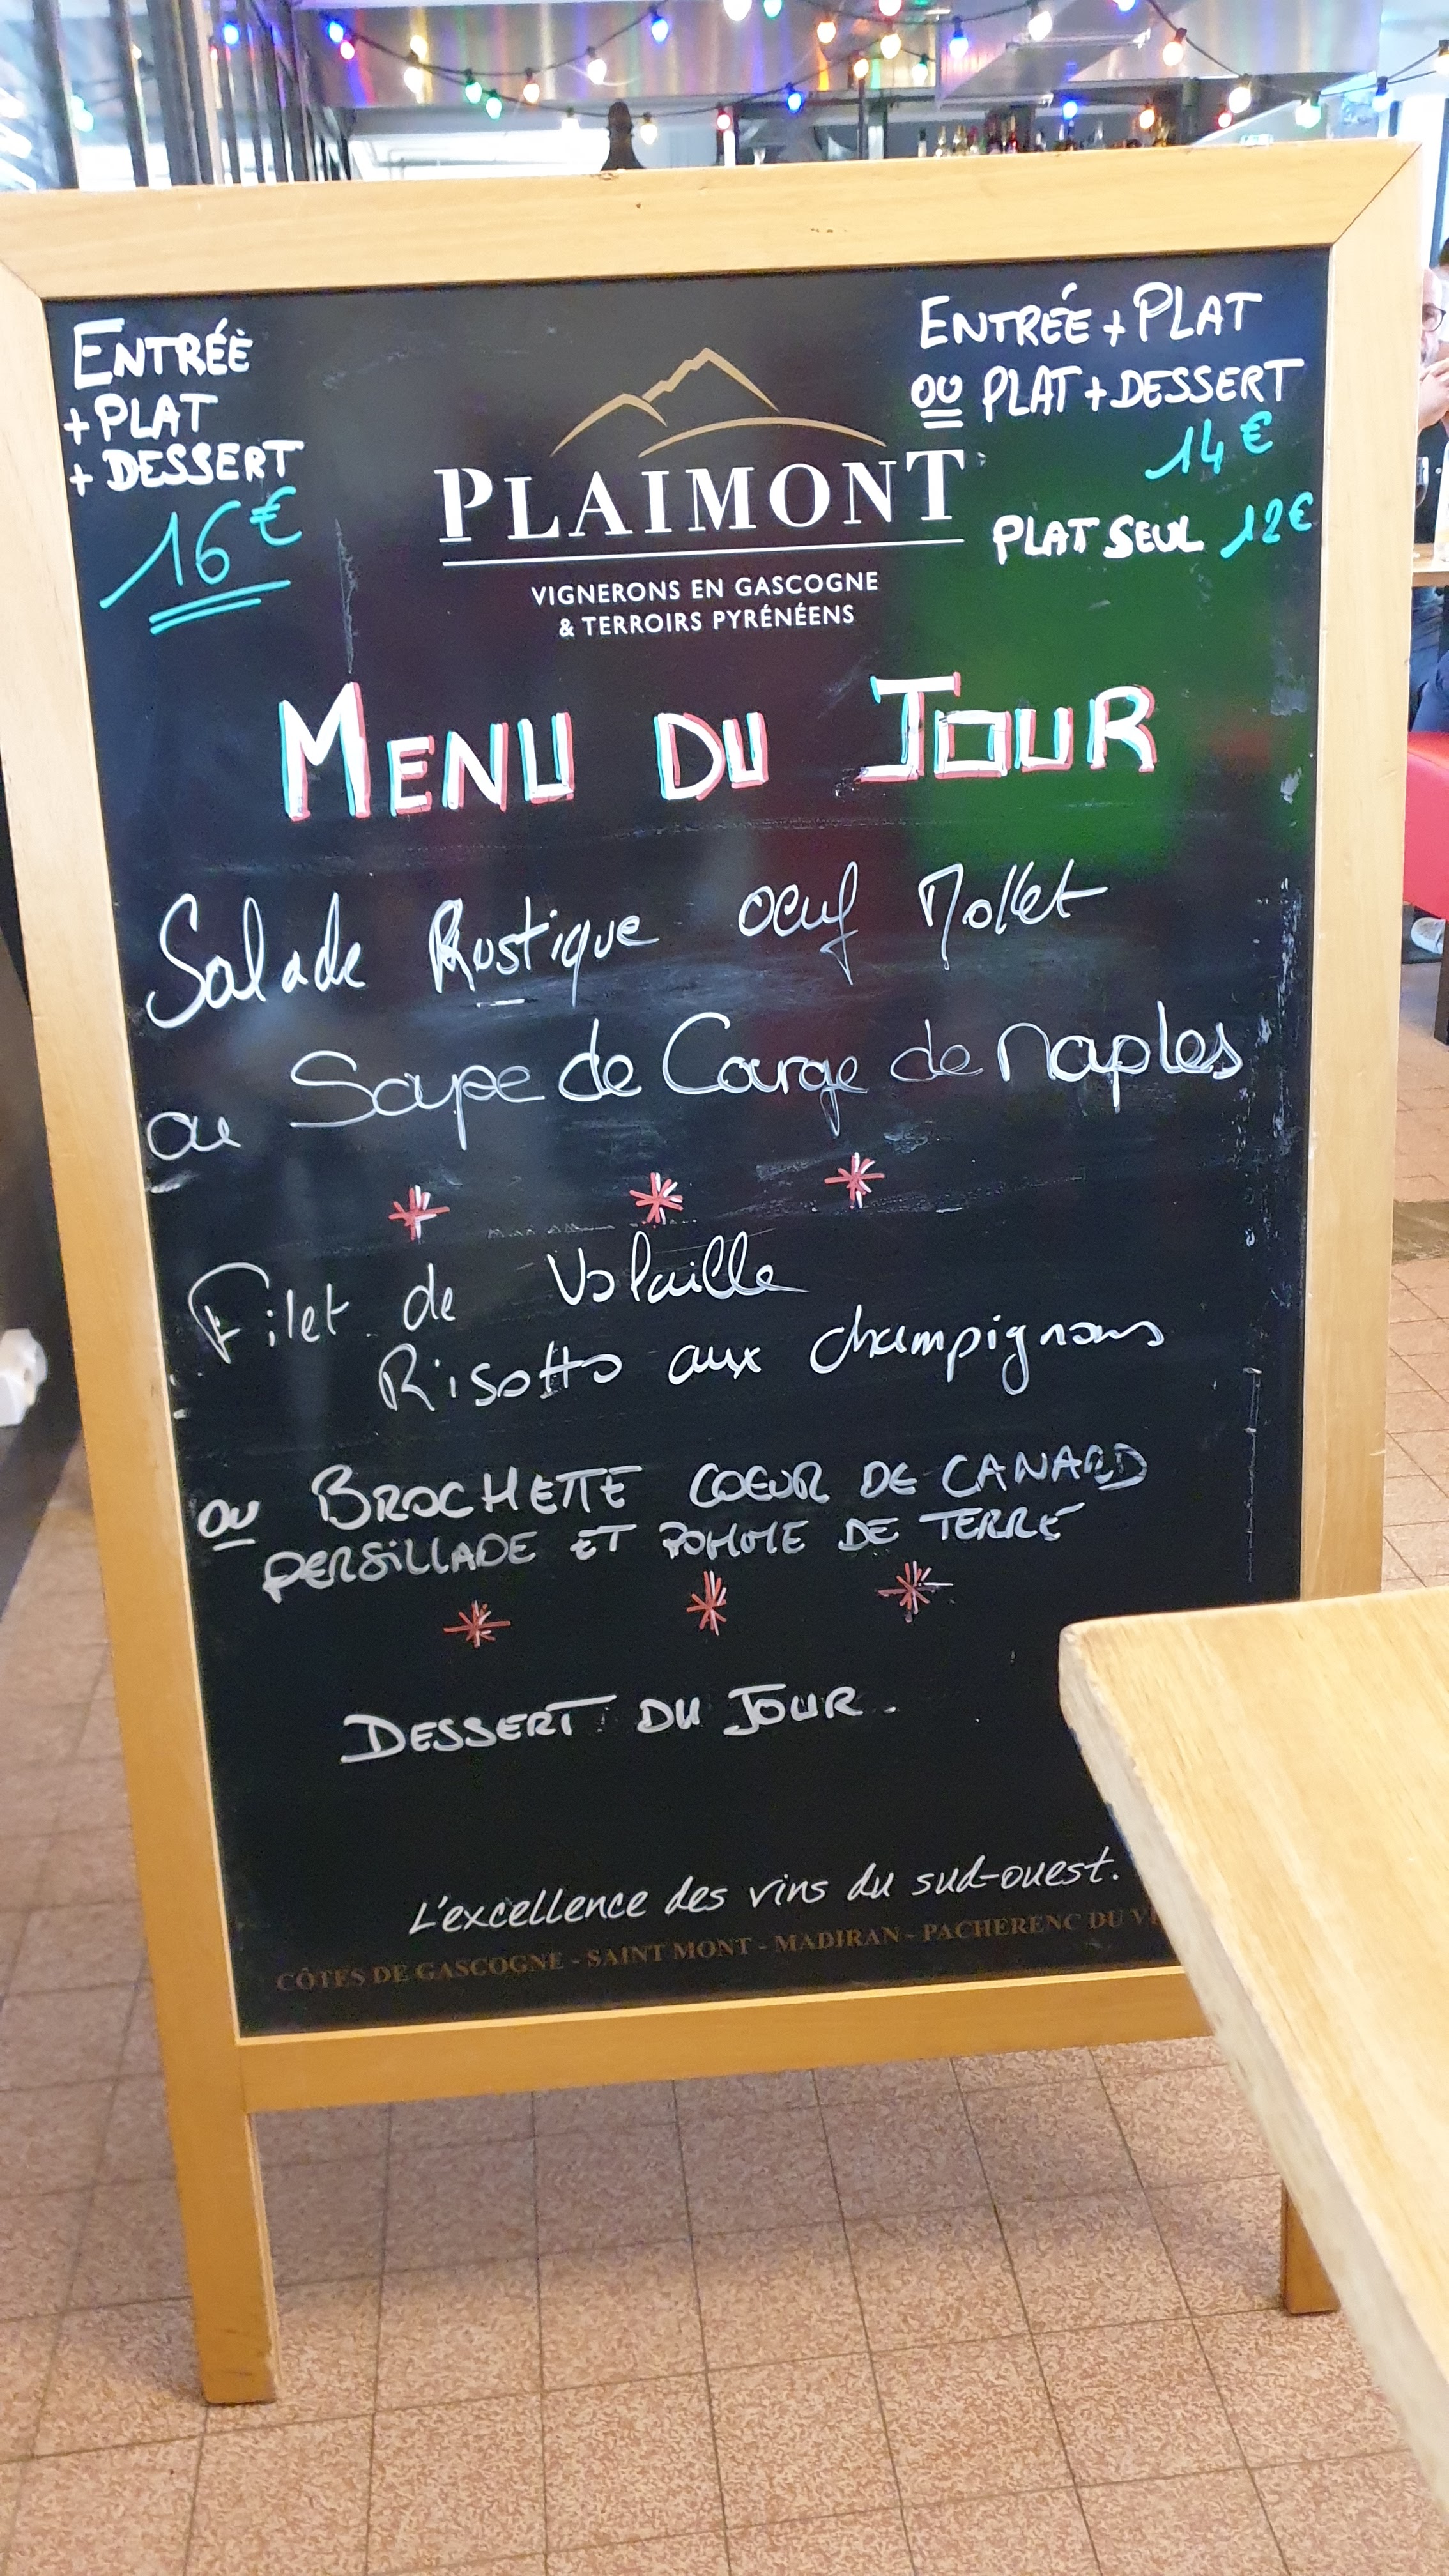 ENTRÉE
+ PLAT
+ DESSERT
16€
ENTRÉE + PLAT
OU PLAT + DESSERT
14€
PLAT SEUL 12€
PLAIMONT
VIGNERONS EN GASCOGNE
& TERROIRS PYRÉNÉENS
MENU DU JOUR
Salade Rustique oeuf Mollet
ou Soupe de Courge de Naples
* * *
Filet de Volaille
Risotto aux champignons
ou BROCHETTE COEUR DE CANARD
PERSILLADE ET POMME DE TERRE
* * *
DESSERT DU JOUR.
L'excellence des vins du sud-ouest.
CÔTES DE GASCOGNE - SAINT MONT - MADIRAN - PACHERENC DU